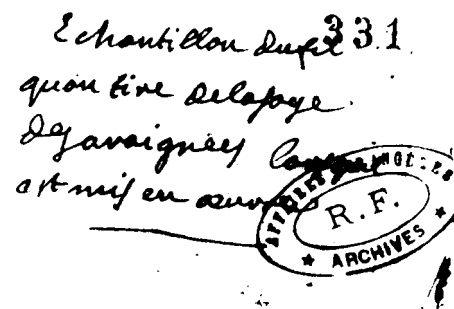 Echantillon du fil 331
quon tire de la soye
des araignées lorsquil
est mis en œuvre
AFFAIRES ETRANGÈRES
R.F.
ARCHIVES